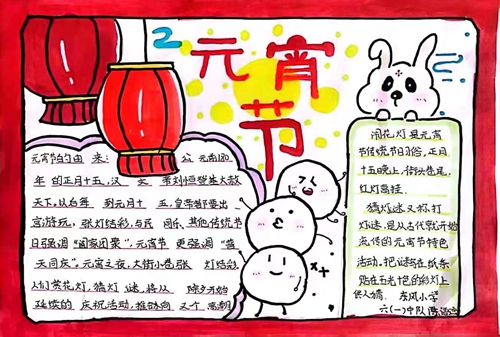 元宵
节
元宵节的由来: 公元前180
年的正月十五,汉文帝刘恒登基大赦
天下,从每年到元月十五,皇帝都要出
宫游玩,张灯结彩,与民同乐,其他传统节
日强调“阖家团聚”,元宵节更强调“普
天同庆”。元宵之夜,大街小巷张灯结彩,
人们赏花灯,猜灯谜,将从除夕开始
延续的庆祝活动,推动向又个高潮
闹花灯是元宵
节传统节日习俗,正月
十五晚上,街头巷尾,
红灯高挂,
猜灯谜又称打
灯谜,是从古代就开始
流传的元宵节特色
活动,把谜写在纸条
贴在五光十色的彩灯上
供人猜. 东风小学
六(一)中队陈